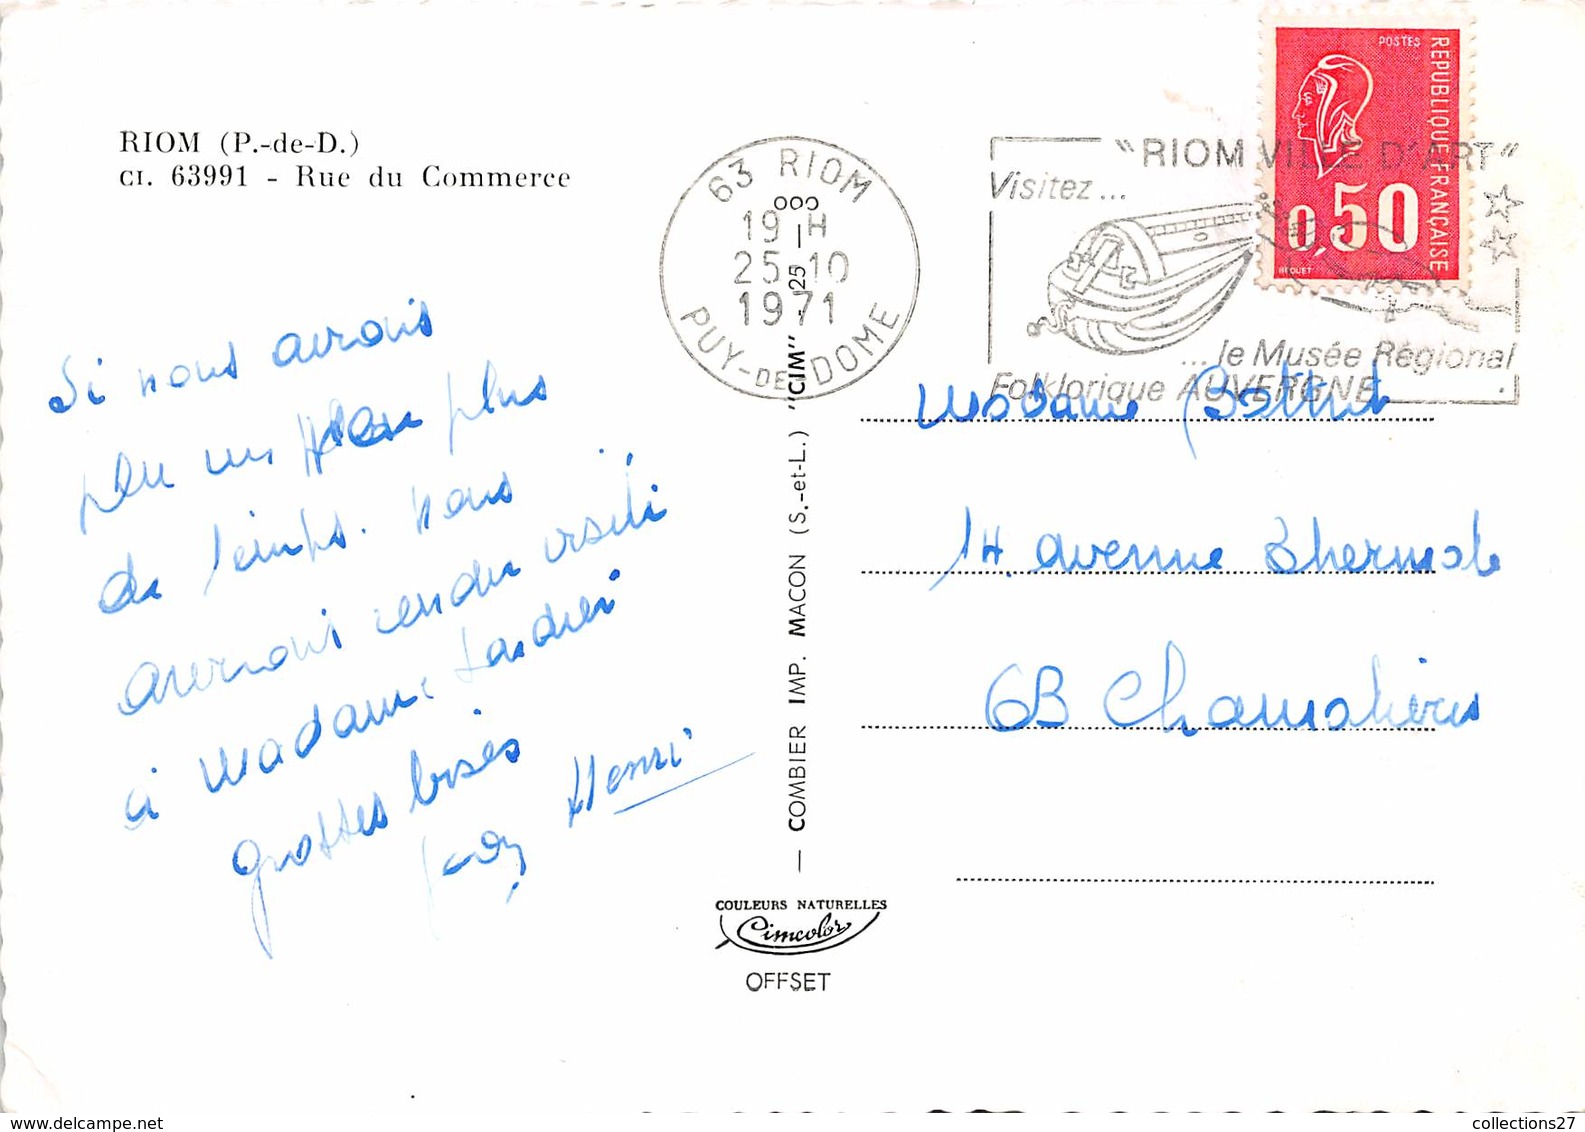 RIOM (P.-de-D.)
CI. 63991 - Rue du Commerce
63 RIOM
19 H
25-10
1971
PUY-DE-DOME
"RIOM VILLE D'ART"
Visitez...
...le Musée Régional
Folklorique AUVERGNE
POSTES
RÉPUBLIQUE FRANÇAISE
0,50
BEQUET
Si nous avions
peu un plus
de temps. nous
aurions rendu visite
à Madame
grosses bises
Henri
Madame
14. avenue Thermale
63 Chamalières
COMBIER IMP. MACON (S.-et-L.) "CIM"
COULEURS NATURELLES
Cimcolor
OFFSET
https://www.delcampe.net
collections27